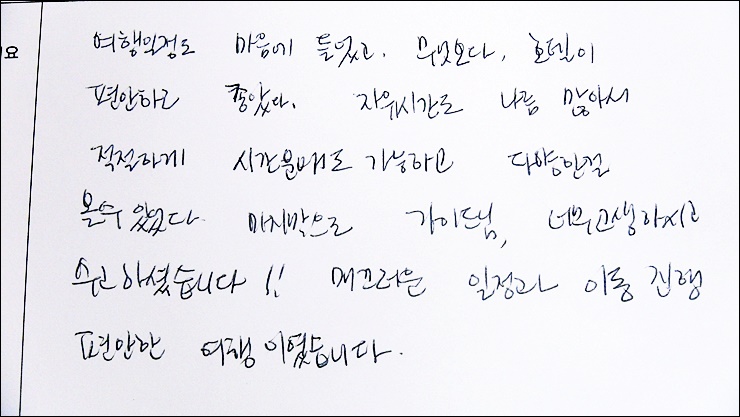 요
여행일정도 마음에 들었고. 무엇보다, 호텔이
편안하고 좋았다. 자유시간도 나름 많아서
적절하게 시간분배도 가능하고 다양한걸
볼수 있었다. 마지막으로 가이드님, 너무고생하시고
수고하셨습니다!! 매끄러운 일정과 이동 진행
편안한 여행이였습니다.